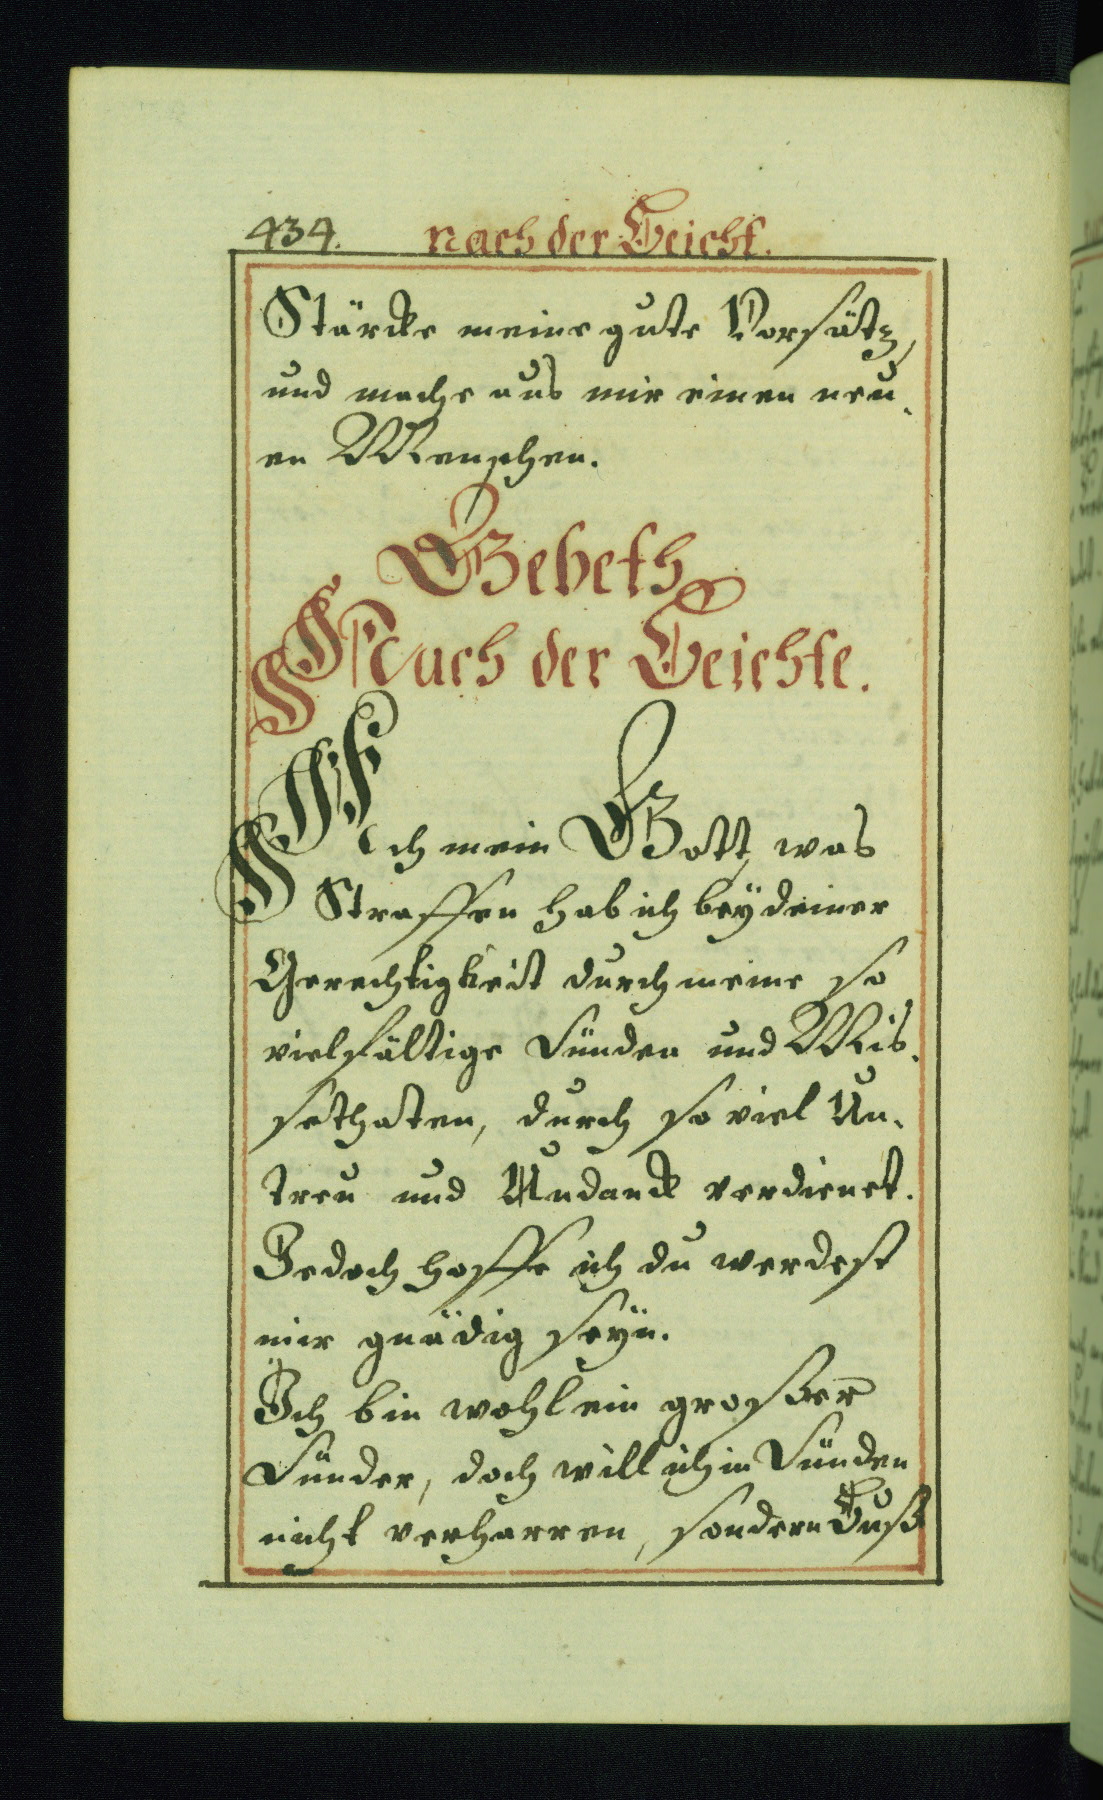 434. nach der Beicht.
Stärcke meine gute Vorsätz,
und mache aus mir einen neu-
en Menschen.
Gebeth
Nach der Beichte.
Ach mein Gott, was
Straffen hab ich bey deiner
Gerechtigkeit durch meine so
vielfältige Sünden und Mis-
sethaten, durch so viel Un-
treu und Undanck verdienet.
Jedoch hoffe ich du werdest
mir gnädig seyn.
Ich bin wohl ein großer
Sünder, doch will ich in Sünden
nicht verharren, sondern Buß